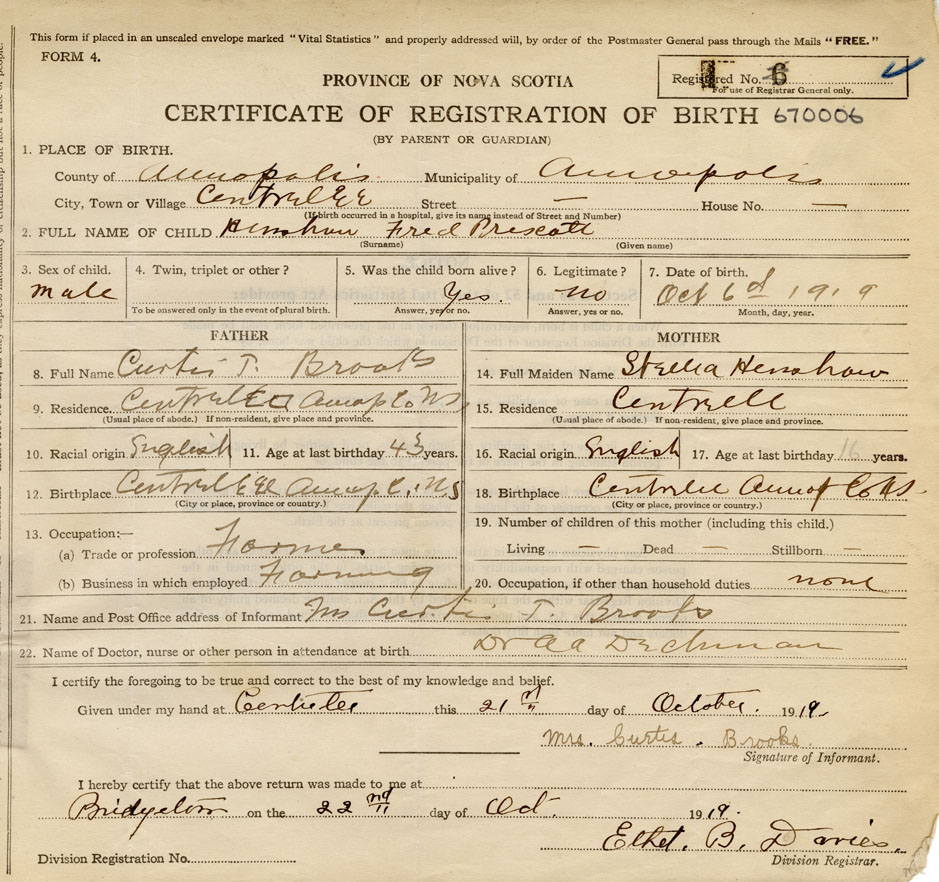 This form if placed in an unsealed envelope marked "Vital Statistics" and properly addressed will, by order of the Postmaster General pass through the Mails "FREE."
FORM 4.
PROVINCE OF NOVA SCOTIA
Registered No. 6
For use of Registrar General only.
CERTIFICATE OF REGISTRATION OF BIRTH 670006
(BY PARENT OR GUARDIAN)
1. PLACE OF BIRTH.
County of Annapolis Municipality of Annapolis
City, Town or Village Centrelee Street — House No. —
(If birth occurred in a hospital, give its name instead of Street and Number)
2. FULL NAME OF CHILD Henshaw Fred Prescott
(Surname) (Given name)
3. Sex of child. 4. Twin, triplet or other? 5. Was the child born alive? 6. Legitimate? 7. Date of birth.
Male Yes. no Oct 6d 1919
To be answered only in the event of plural birth. Answer, yes or no. Answer, yes or no. Month, day, year.
FATHER MOTHER
8. Full Name Curtis T. Brooks 14. Full Maiden Name Stella Henshaw
9. Residence. Annap Co NS 15. Residence Centrell
(Usual place of abode.) If non-resident, give place and province. (Usual place of abode.) If non-resident, give place and province.
10. Racial origin English 11. Age at last birthday 43 years. 16. Racial origin English 17. Age at last birthday 16 years.
12. Birthplace Annap. C. NS 18. Birthplace Centrelee Annap Co NS
(City or place, province or country.) (City or place, province or country.)
13. Occupation:— 19. Number of children of this mother (including this child.)
(a) Trade or profession Farmer Living — Dead — Stillborn —
(b) Business in which employed Farming 20. Occupation, if other than household duties. none
21. Name and Post Office address of Informant Mrs Curtis T. Brooks
22. Name of Doctor, nurse or other person in attendance at birth. Dr AA Dechman
I certify the foregoing to be true and correct to the best of my knowledge and belief.
Given under my hand at this 21 day of October. 1919.
Mrs. Curtis. Brooks
Signature of Informant.
I hereby certify that the above return was made to me at
Bridgetown on the 22nd day of Oct. 1919.
Ethel. B. Davies
Division Registration No. Division Registrar.